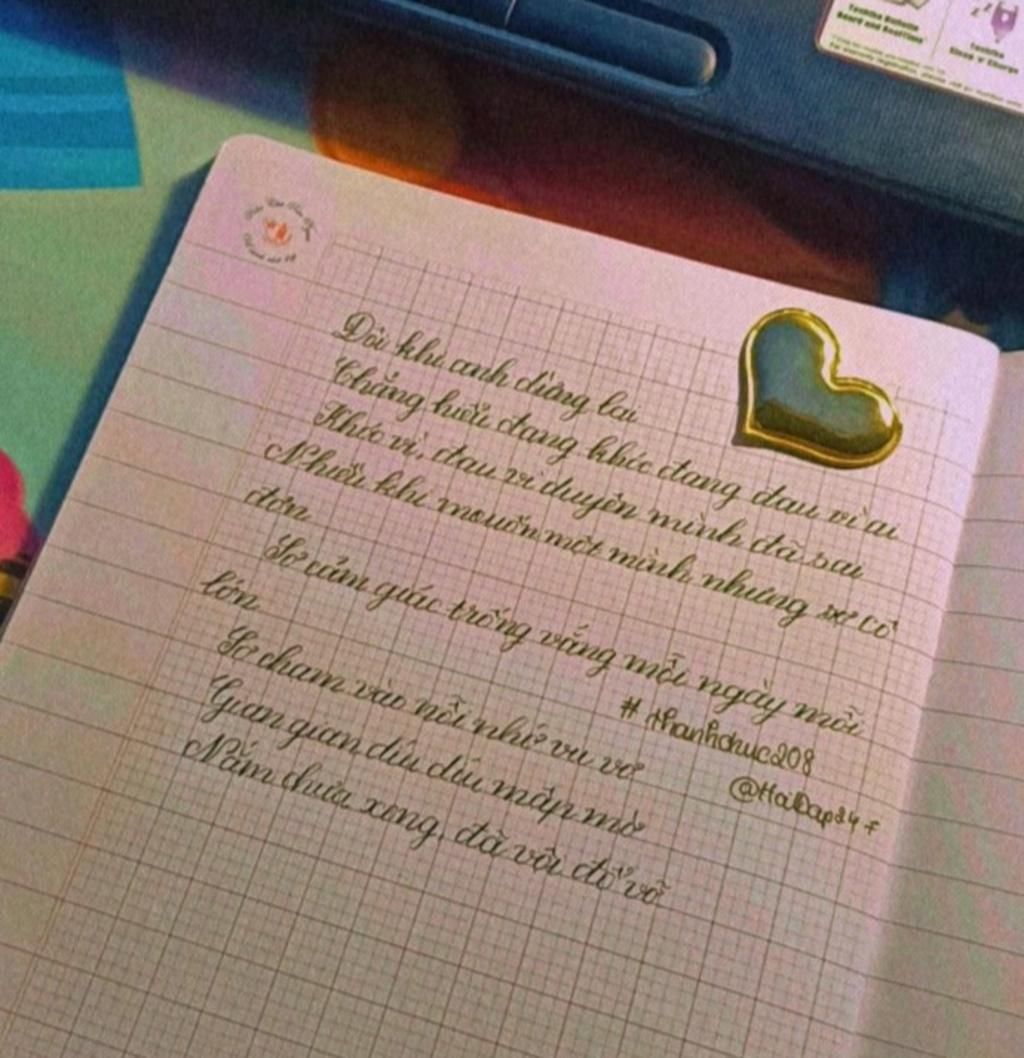 Toshiba Bulletin
Board and ReelTime
Toshiba
Sleep 'n' Charge
Đôi khi anh dừng lại
Chẳng hiểu đang khóc đang đau vì ai
Khóc vì, đau vì duyên mình đã sai
Nhiều khi muốn một mình nhưng sợ cô
đơn
Sợ cảm giác trống vắng mỗi ngày mỗi
lớn
Sợ chạm vào nỗi nhớ vu vơ
Gian gian díu díu mập mờ
Nắm chưa xong, đã vội đổ vỡ
# thanhchuc208
@HoiDap24